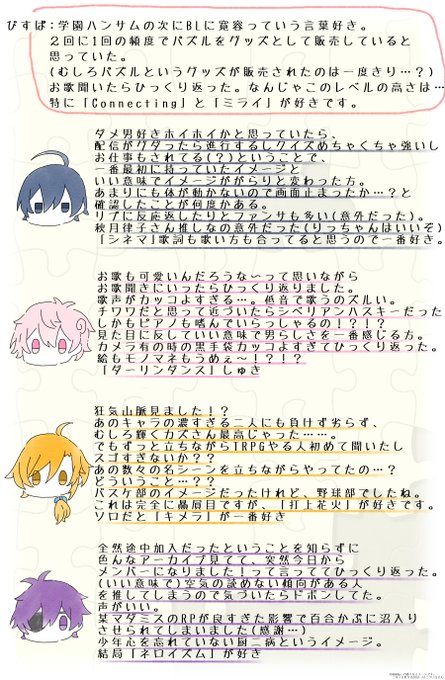 びすぱ:学園ハンサムの次にBLに寛容っていう言葉好き。
2回に1回の頻度でパズルをグッズとして販売していると
思っていた。
(むしろパズルというグッズが販売されたのは一度きり…?)
お歌聞いたらひっくり返った。なんじゃこのレベルの高さは…
特に「Connecting」と「ミライ」が好きです。
ダメ男好きホイホイかと思っていたら、
配信がグダったら進行するしクイズめちゃくちゃ強いし
お仕事もされてる(?)ということで、
一番最初に持っていたイメージと
いい意味でイメージががらりと変わった方。
あまりにも体が動かないので画面止まったか…?と
確認したことが何度かある。
リプに反応返したりとファンサも多い(意外だった)。
秋月律子さん推しなの意外だった(りっちゃんはいいぞ)
「シネマ」歌詞も歌い方も合ってると思うので一番好き。
お歌も可愛いんだろうな〜って思いながら
お歌聞きにいったらひっくり返りました。
歌声がカッコよすぎる…。低音で歌うのズルい。
チワワだと思って近づいたらシベリアンハスキーだった
しかもピアノも嗜んでいらっしゃるの!?!?
見た目に反していい意味で男らしさを一番感じる方。
カメラ有の時の黒手袋カッコよすぎてひっくり返った。
絵もモノマネもうめぇ〜!?!?
「ダーリンダンス」しゅき
狂気山脈見ました!?
あのキャラの濃すぎる三人にも負けず劣らず、
むしろ輝くカズさん最高じゃった……。
でもずっと立ちながらTRPGやる人初めて聞いたし
スゴすぎないか??
あの数々の名シーンを立ちながらやってたの…?
どういうこと…??
バスケ部のイメージだったけれど、野球部でしたね。
これは完全に贔屓目ですが、「打上花火」が好きです。
ソロだと「キメラ」が一番好き
全然途中加入だったということを知らずに
色んなアーカイブ見てて、突然今日から
メンバーになりました!って言っててひっくり返った。
(いい意味で)空気の読めない傾向がある人
を推してしまうので気づいたらドボンしてた。
声がいい。
某マダミスのRPが良すぎた影響で百合かぷに沼入り
させられてしまいました(感謝…)
少年心を忘れていない厨二病というイメージ。
結局「ネロイズム」が好き